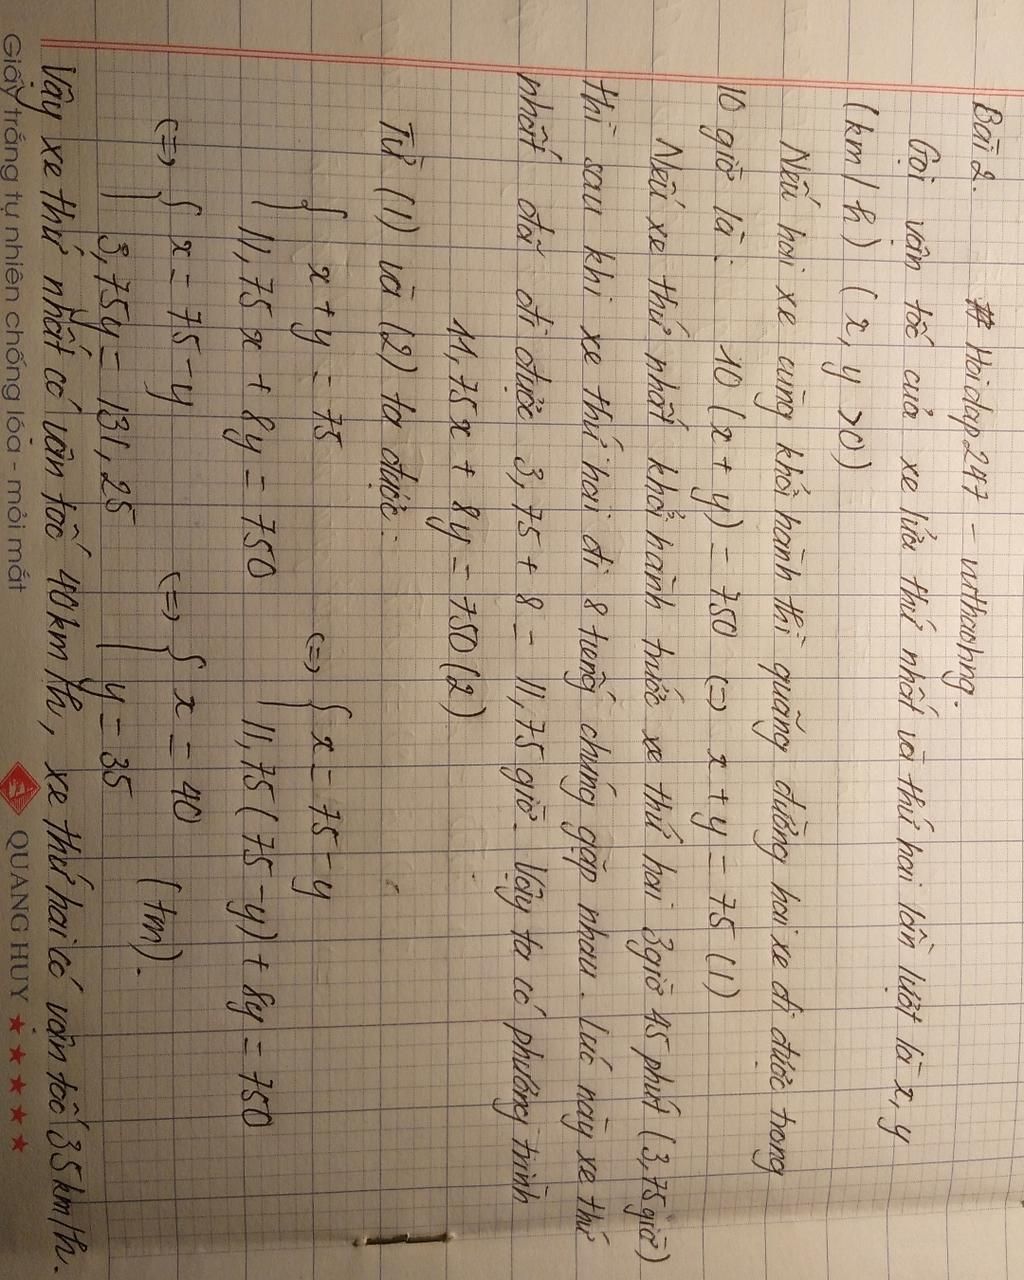 Bài 2. # Hoidap247 - vuthaohng.
Gọi vận tốc của xe lửa thứ nhất và thứ hai lần lượt là x, y
(km/h) (x, y > 0)
Nếu hai xe cùng khởi hành thì quãng đường hai xe đi được trong
10 giờ là: 10 (x + y) = 750 (=) x + y = 75 (1)
Nếu xe thứ nhất khởi hành trước xe thứ hai 3 giờ 45 phút (3,75 giờ)
thì sau khi xe thứ hai đi 8 tiếng chúng gặp nhau. Lúc này xe thứ
nhất đã đi được 3,75 + 8 = 11,75 giờ. Vậy ta có phương trình
11,75x + 8y = 750 (2)
Từ (1) và (2) ta được:
{ x + y = 75 (=) { x = 75 - y
11,75x + 8y = 750 11,75 (75 - y) + 8y = 750
(=) { x = 75 - y (=) { x = 40 (tm).
3,75y = 131,25 y = 35
Vậy xe thứ nhất có vận tốc 40 km/h, xe thứ hai có vận tốc 35 km/h.
Giấy trắng tự nhiên chống lóa - mỏi mắt QUANG HUY ★★★★★